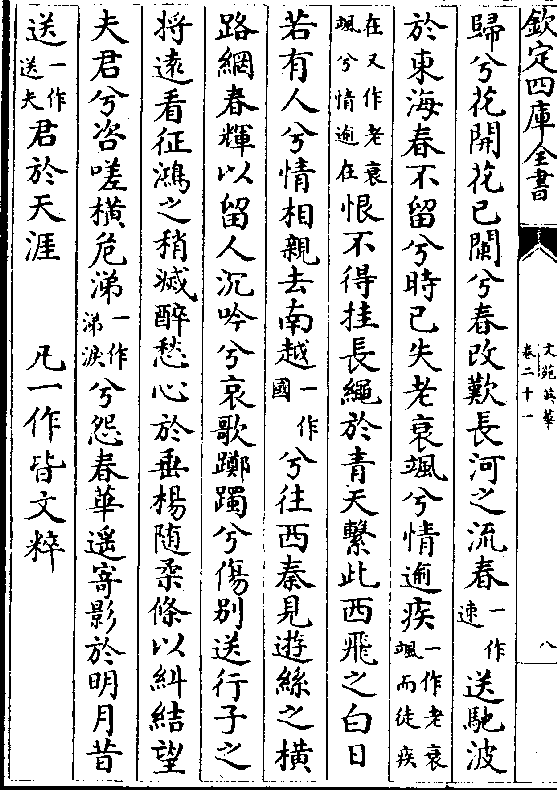 欽定四庫全書
文苑英華
卷二十一
八
歸兮花開花已闌兮春改歎長河之流春一作速送馳波
於東海春不留兮時已失老衰颯兮情逾疾一作老衰颯而徒疾
在又作老衰颯兮情逾在恨不得挂長繩於青天繫此西飛之白日
若有人兮情相親去南越一作國兮往西秦見遊絲之橫
路網春輝以留人沉吟兮哀歌躑躅兮傷別送行子之
將遠看征鴻之稍滅醉愁心於垂楊随柔條以糾結望
夫君兮咨嗟橫危涕一作涕淚兮怨春華遥寄影於明月昔
送一作送夫君於天涯 凡一作皆文粹